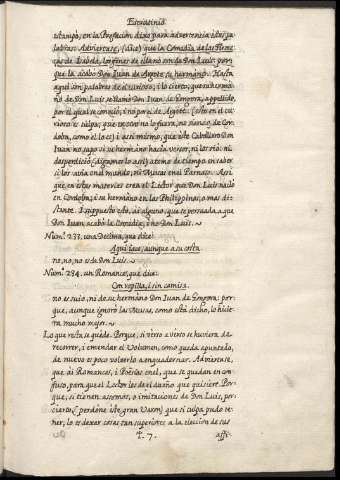 Escrutinio
estampò, en la Prefacion dixo para advertencia estas pa
labras: Adviertase, (dice) que la Comedia de las Firme
ças de Isabela, los fines de ella no son de Don Luis; por
que la acabò Don Juan de Argote, su hermano. Hasta
aqui son palabras de el curioso; i lo cierto, que su herma
no de Don Luis, se llamò Don Juan de Gongora, appellido,
por el qual se conociò, i no por el de Argote. (esto en el cu
rioso es culpa; que en otro no lo fuera, no siendo de Cor
doba, como el lo es) i asi mismo, que este Caballero Don
Juan no supo si su hermano hacía versos, ni los viò: ni
desperdiciò (digamos lo asi) atomo de tiempo en saber
si los avía en el mundo, ni Musas en el Parnaso. Asi
que, en estas materias crea el Lector que Don Luis naciò
en Cordoba, i su hermano en las Philippinas, o mas de
stante. I supuesto esto, aì alguno, que se persuada, a que
Don Juan acabò la Comedia, i no Don Luis.
Num.º 233. una Decima, que dice:
Aqui iace, aunque a su costa
no, no, no es de Don Luis.
Num.º 234. un Romance, que dice:
Con ropilla, i sin camisa.
no es suio, ni de su hermano Don Juan de Gongora: por
que, aunque ignorò las Musas, como està dicho, lo hicie
ra mucho mejor.
Lo que resta se quede. Porque, si verso a verso se huviera de
recorrer, i emendar el Volumen, como queda apuntado,
de nuevo es poco volverlo a enquadernar. Advierta se,
que aì Romances, i Poesías en el, que se quedan en con
fuso, para que el Lector los dè el dueño que quisiere. Por
que, si tienen asomos, o imitaciones de Don Luis, por
cierto, (perdone este gran Varon) que si culpa pudo te
ner, lo es dexar cosas tan superiores a la eleccion de sus
7.
affi